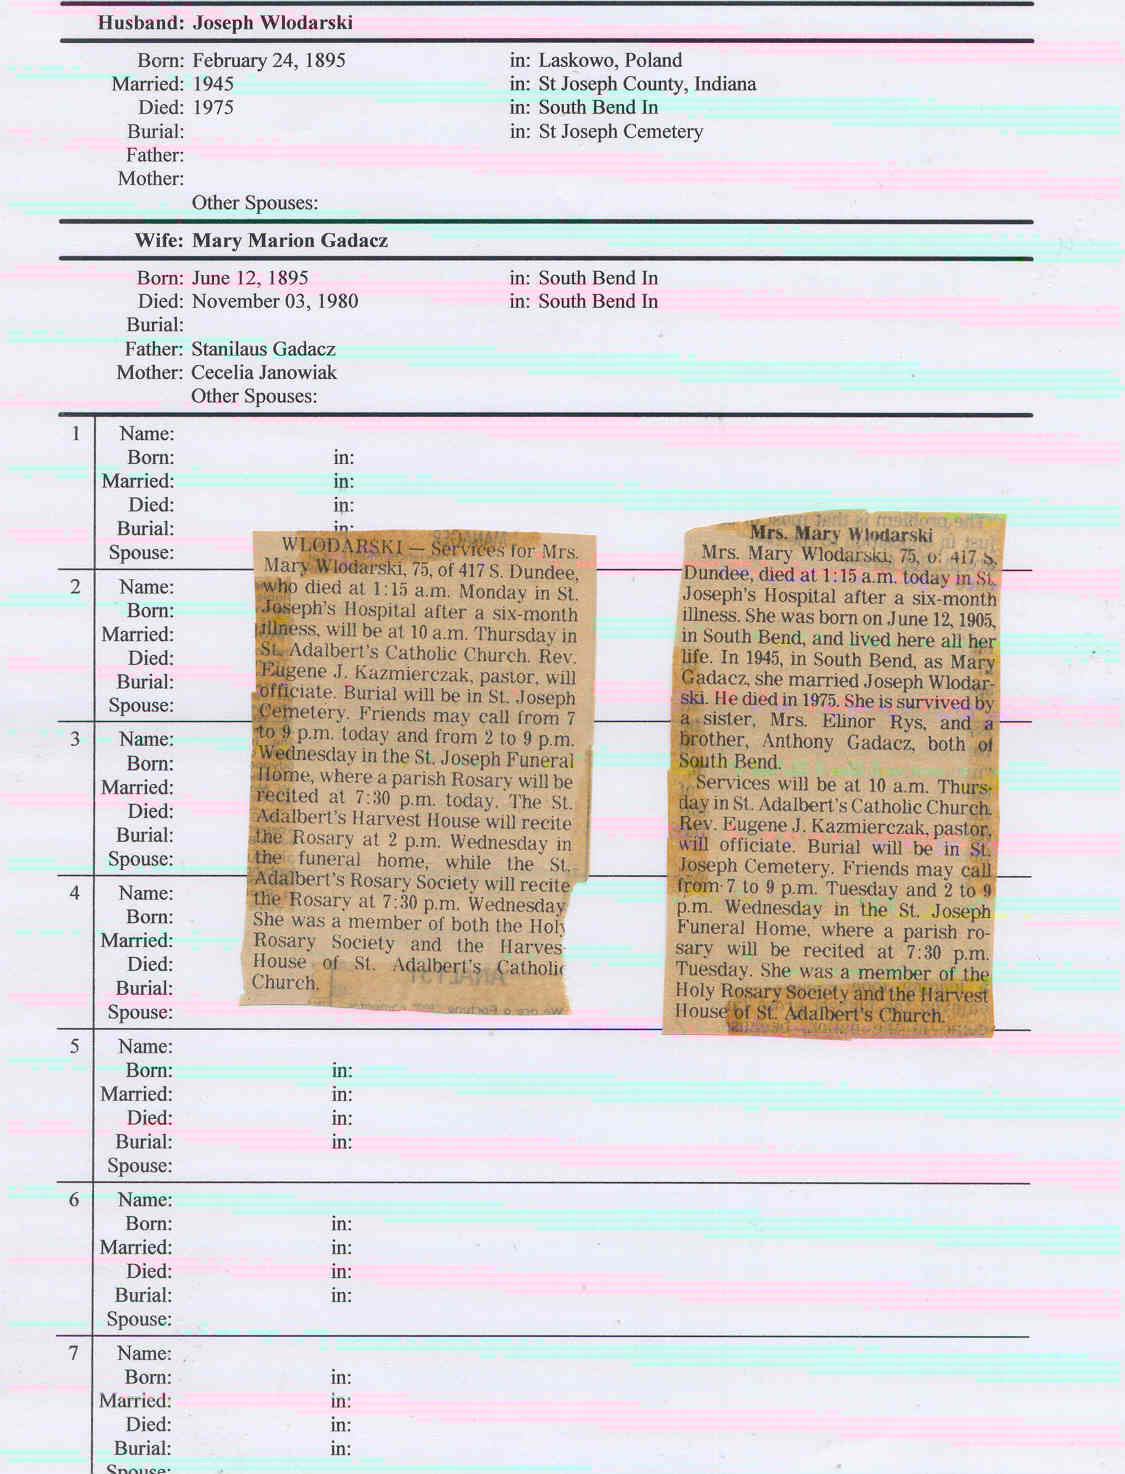 Husband: Joseph Wlodarski
Born: February 24, 1895 in: Laskowo, Poland
Married: 1945 in: St Joseph County, Indiana
Died: 1975 in: South Bend In
Burial: in: St Joseph Cemetery
Father:
Mother:
Other Spouses:
Wife: Mary Marion Gadacz
Born: June 12, 1895 in: South Bend In
Died: November 03, 1980 in: South Bend In
Burial:
Father: Stanilaus Gadacz
Mother: Cecelia Janowiak
Other Spouses:
1 Name:
Born: in:
Married: in:
Died: in:
Burial: in:
Spouse:
2 Name:
Born:
Married:
Died:
Burial:
Spouse:
3 Name:
Born:
Married:
Died:
Burial:
Spouse:
4 Name:
Born:
Married:
Died:
Burial:
Spouse:
WLODARSKI — Services for Mrs.
Mary Wlodarski, 75, of 417 S. Dundee,
who died at 1:15 a.m. Monday in St.
Joseph's Hospital after a six-month
illness, will be at 10 a.m. Thursday in
St. Adalbert's Catholic Church. Rev.
Eugene J. Kazmierczak, pastor, will
officiate. Burial will be in St. Joseph
Cemetery. Friends may call from 7
to 9 p.m. today and from 2 to 9 p.m.
Wednesday in the St. Joseph Funeral
Home, where a parish Rosary will be
recited at 7:30 p.m. today. The St.
Adalbert's Harvest House will recite
the Rosary at 2 p.m. Wednesday in
the funeral home, while the St.
Adalbert's Rosary Society will recite
the Rosary at 7:30 p.m. Wednesday
She was a member of both the Holy
Rosary Society and the Harves-
House of St. Adalbert's Catholic
Church.
Mrs. Mary Wlodarski
Mrs. Mary Wlodarski, 75, of 417 S.
Dundee, died at 1:15 a.m. today in St.
Joseph's Hospital after a six-month
illness. She was born on June 12, 1905,
in South Bend, and lived here all her
life. In 1945, in South Bend, as Mary
Gadacz, she married Joseph Wlodar-
ski. He died in 1975. She is survived by
a sister, Mrs. Elinor Rys, and a
brother, Anthony Gadacz, both of
South Bend.
Services will be at 10 a.m. Thurs-
day in St. Adalbert's Catholic Church.
Rev. Eugene J. Kazmierczak, pastor,
will officiate. Burial will be in St.
Joseph Cemetery. Friends may call
from 7 to 9 p.m. Tuesday and 2 to 9
p.m. Wednesday in the St. Joseph
Funeral Home, where a parish ro-
sary will be recited at 7:30 p.m.
Tuesday. She was a member of the
Holy Rosary Society and the Harvest
House of St. Adalbert's Church.
5 Name:
Born: in:
Married: in:
Died: in:
Burial: in:
Spouse:
6 Name:
Born: in:
Married: in:
Died: in:
Burial: in:
Spouse:
7 Name:
Born: in:
Married: in:
Died: in:
Burial: in:
Spouse: